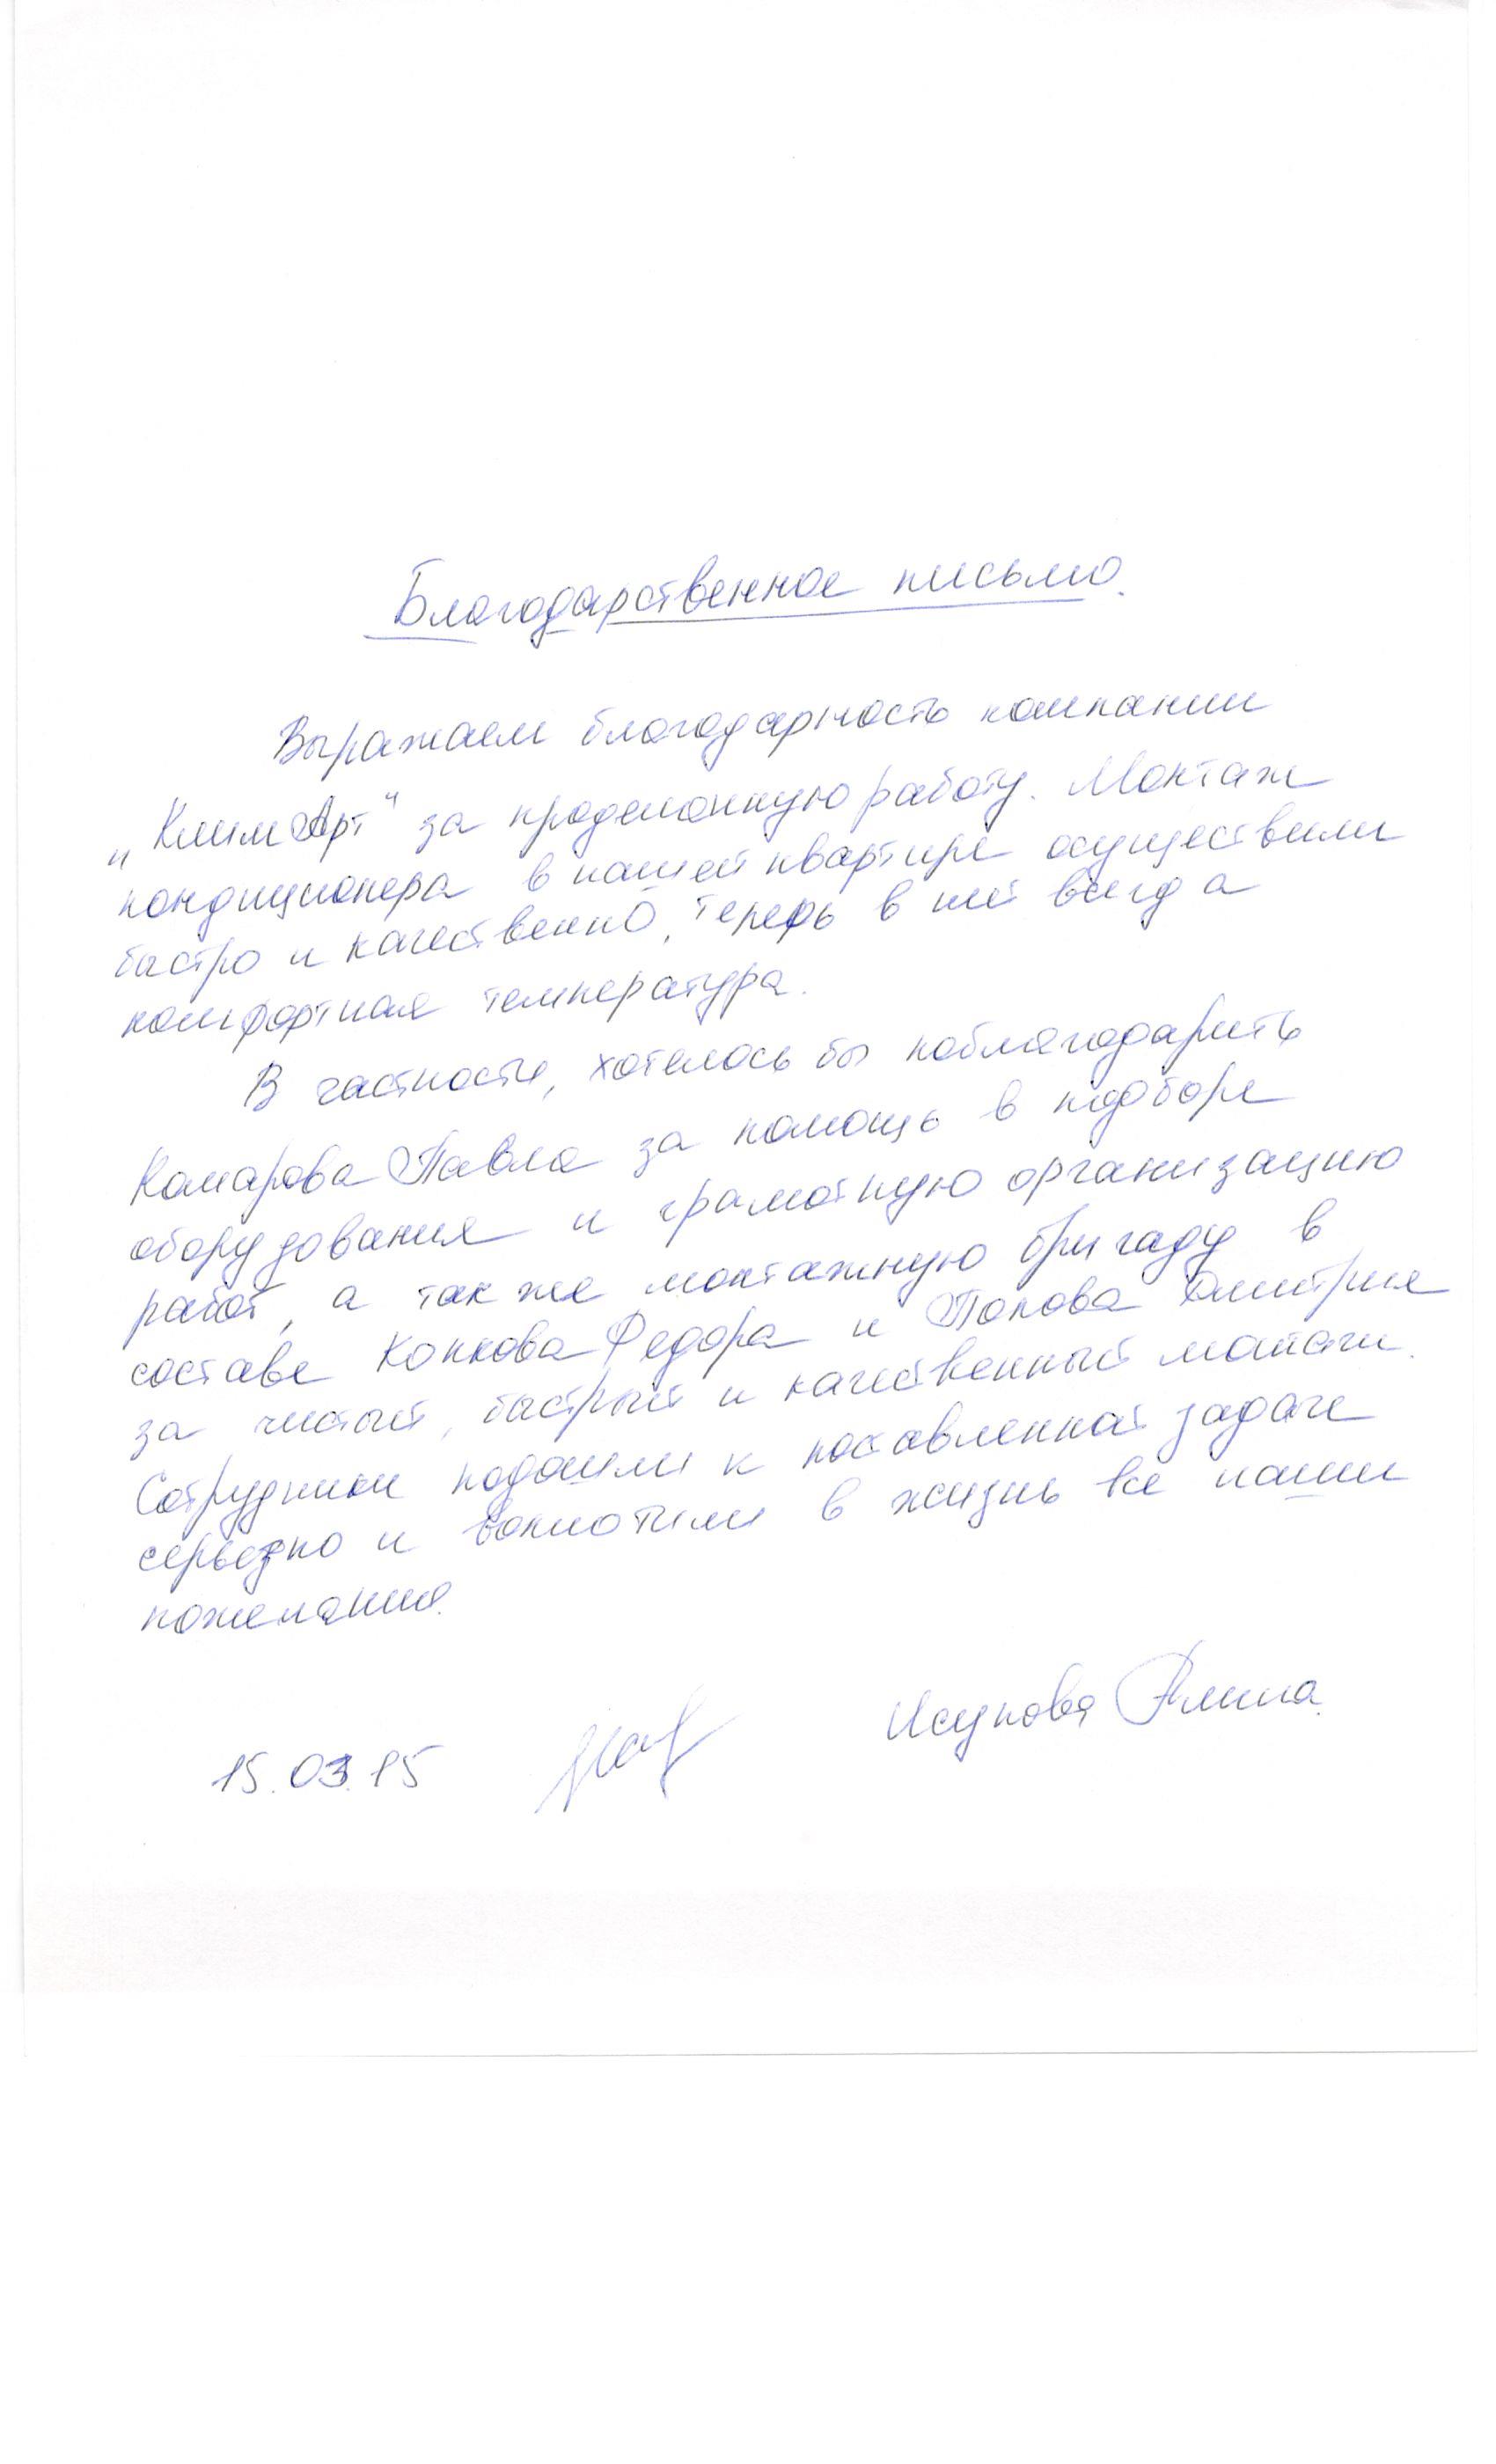 Благодарственное письмо.
Выражаем благодарность компании
„КлимАрт" за проделанную работу. Монтаж
кондиционера в нашей квартире осуществили
быстро и качественно, теперь в ней всегда
комфортная температура.
В частности, хотелось бы поблагодарить
Комарова Павла за помощь в подборе
оборудования и грамотную организацию
работ, а так же монтажную бригаду в
составе Конкова Федора и Попова Дмитрия
за чистый, быстрый и качественный монтаж.
Сотрудники подошли к поставленной задаче
серьезно и воплотили в жизнь все наши
пожелания.
15.03.15 Исупова Алина.